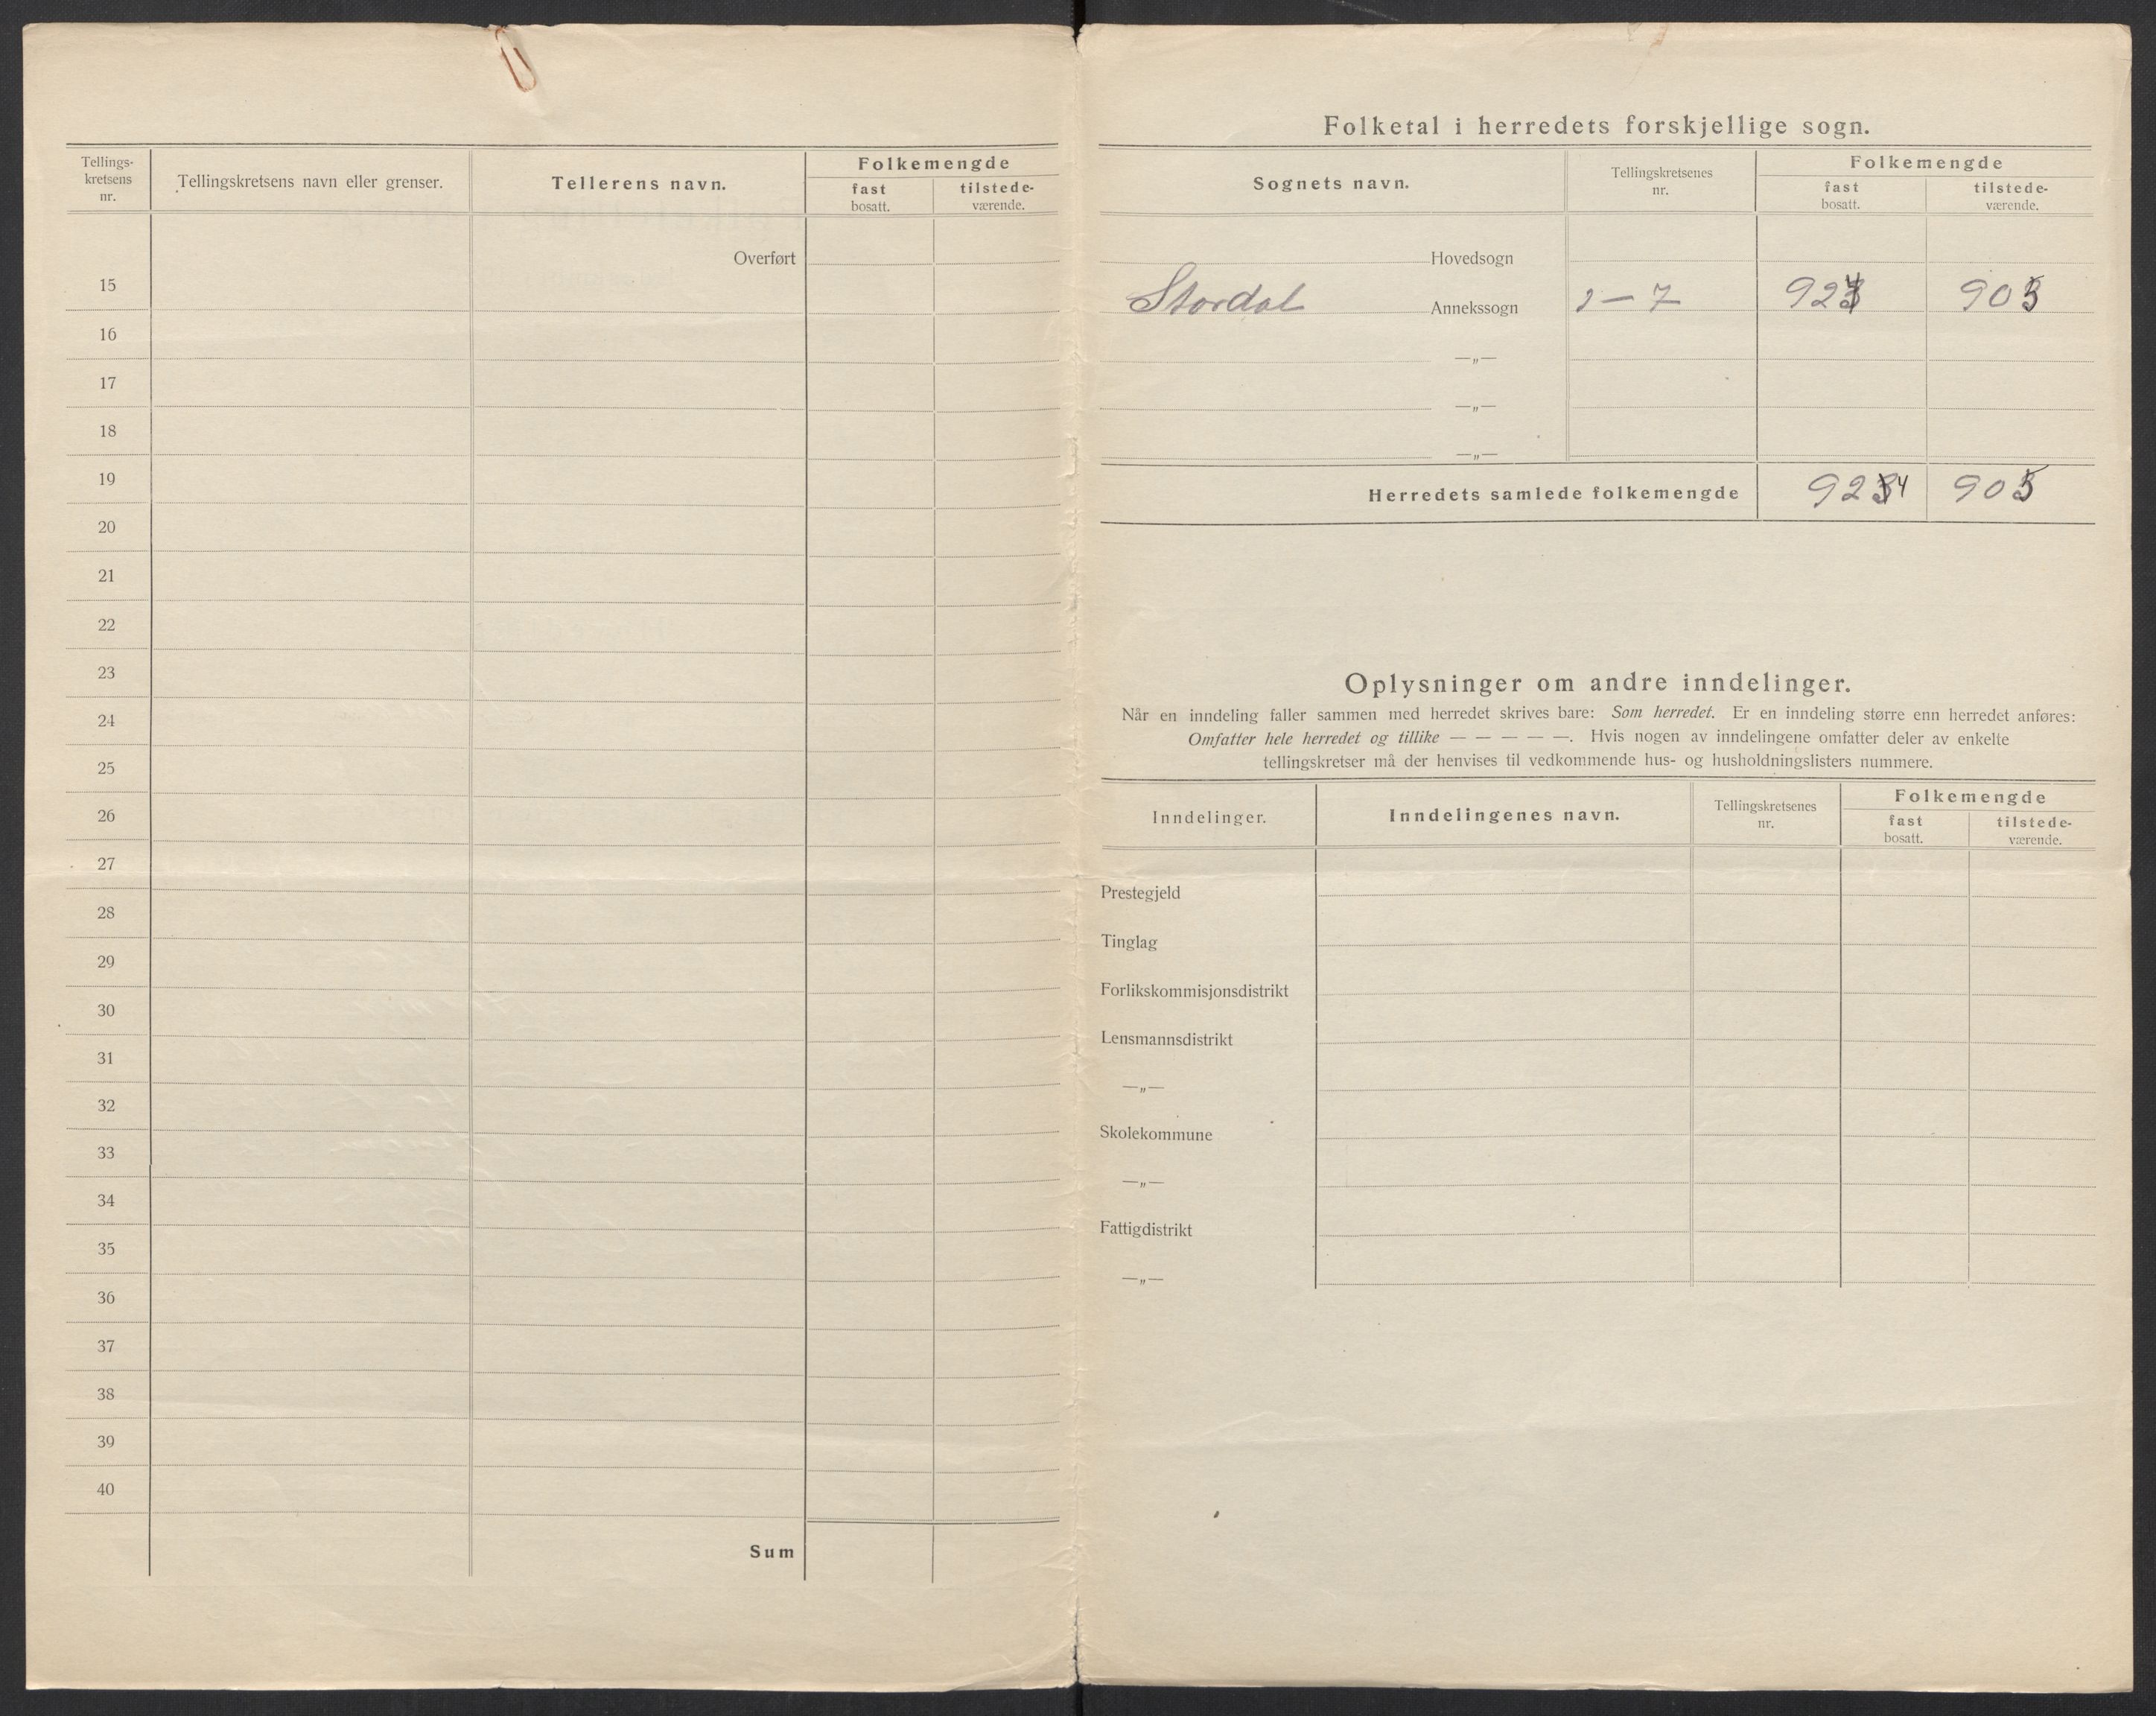 Tellings-
kretsens
nr.
Tellingskretsens navn eller grenser.
Tellerens navn.
Folkemengde
fast
bosatt.
tilstede-
værende.
Overført
15
16
17
18
19
20
21
22
23
24
25
26
27
28
29
30
31
32
33
34
35
36
37
38
39
40
Sum
Folketal i herredets forskjellige sogn.
Sognets navn.
Tellingskretsenes
nr.
Folkemengde
fast
bosatt.
tilstede-
værende.
Hovedsogn
Stordal Annekssogn 1–7 924 905
—„—
—„—
—„—
Herredets samlede folkemengde 924 905
Oplysninger om andre inndelinger.
Når en inndeling faller sammen med herredet skrives bare: Som herredet. Er en inndeling større enn herredet anføres:
Omfatter hele herredet og tillike — — — — —. Hvis nogen av inndelingene omfatter deler av enkelte
tellingskretser må der henvises til vedkommende hus- og husholdningslisters nummere.
Inndelinger.
Inndelingenes navn.
Tellingskretsenes
nr.
Folkemengde
fast
bosatt.
tilstede-
værende.
Prestegjeld
Tinglag
Forlikskommisjonsdistrikt
Lensmannsdistrikt
—„—
Skolekommune
—„—
Fattigdistrikt
—„—